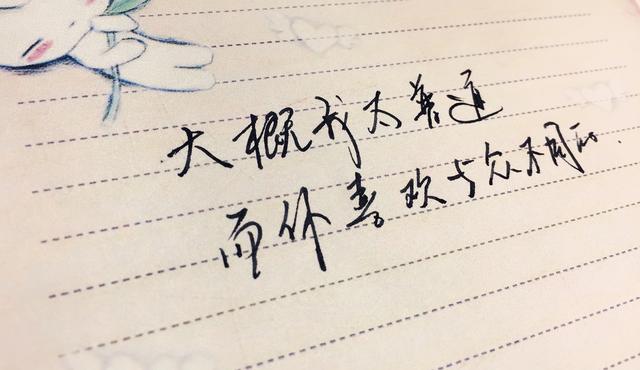 大概我太普通
而你喜欢与众不同的.